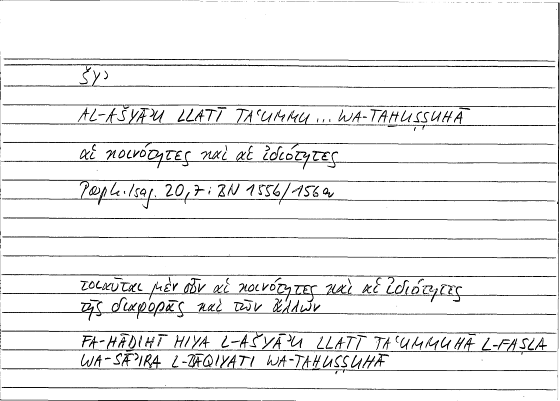 ŠYʾ
AL-AŠYĀʾU LLATĪ TAʿUMMU ... WA-TAḪUṢṢUHĀ
αἱ κοινότητες καὶ αἱ ἰδιότητες
Porph. Isag. 20,7: BN 155b/156a
τοιαῦται μὲν οὖν αἱ κοινότητες καὶ αἱ ἰδιότητες
τῆς διαφορᾶς καὶ τῶν ἄλλων
FA-HĀḎIHĪ HIYA L-AŠYĀʾU LLATĪ TAʿUMMUHĀ L-FAṢLA
WA-SĀʾIRA L-BĀQIYATI WA-TAḪUṢṢUHĀ